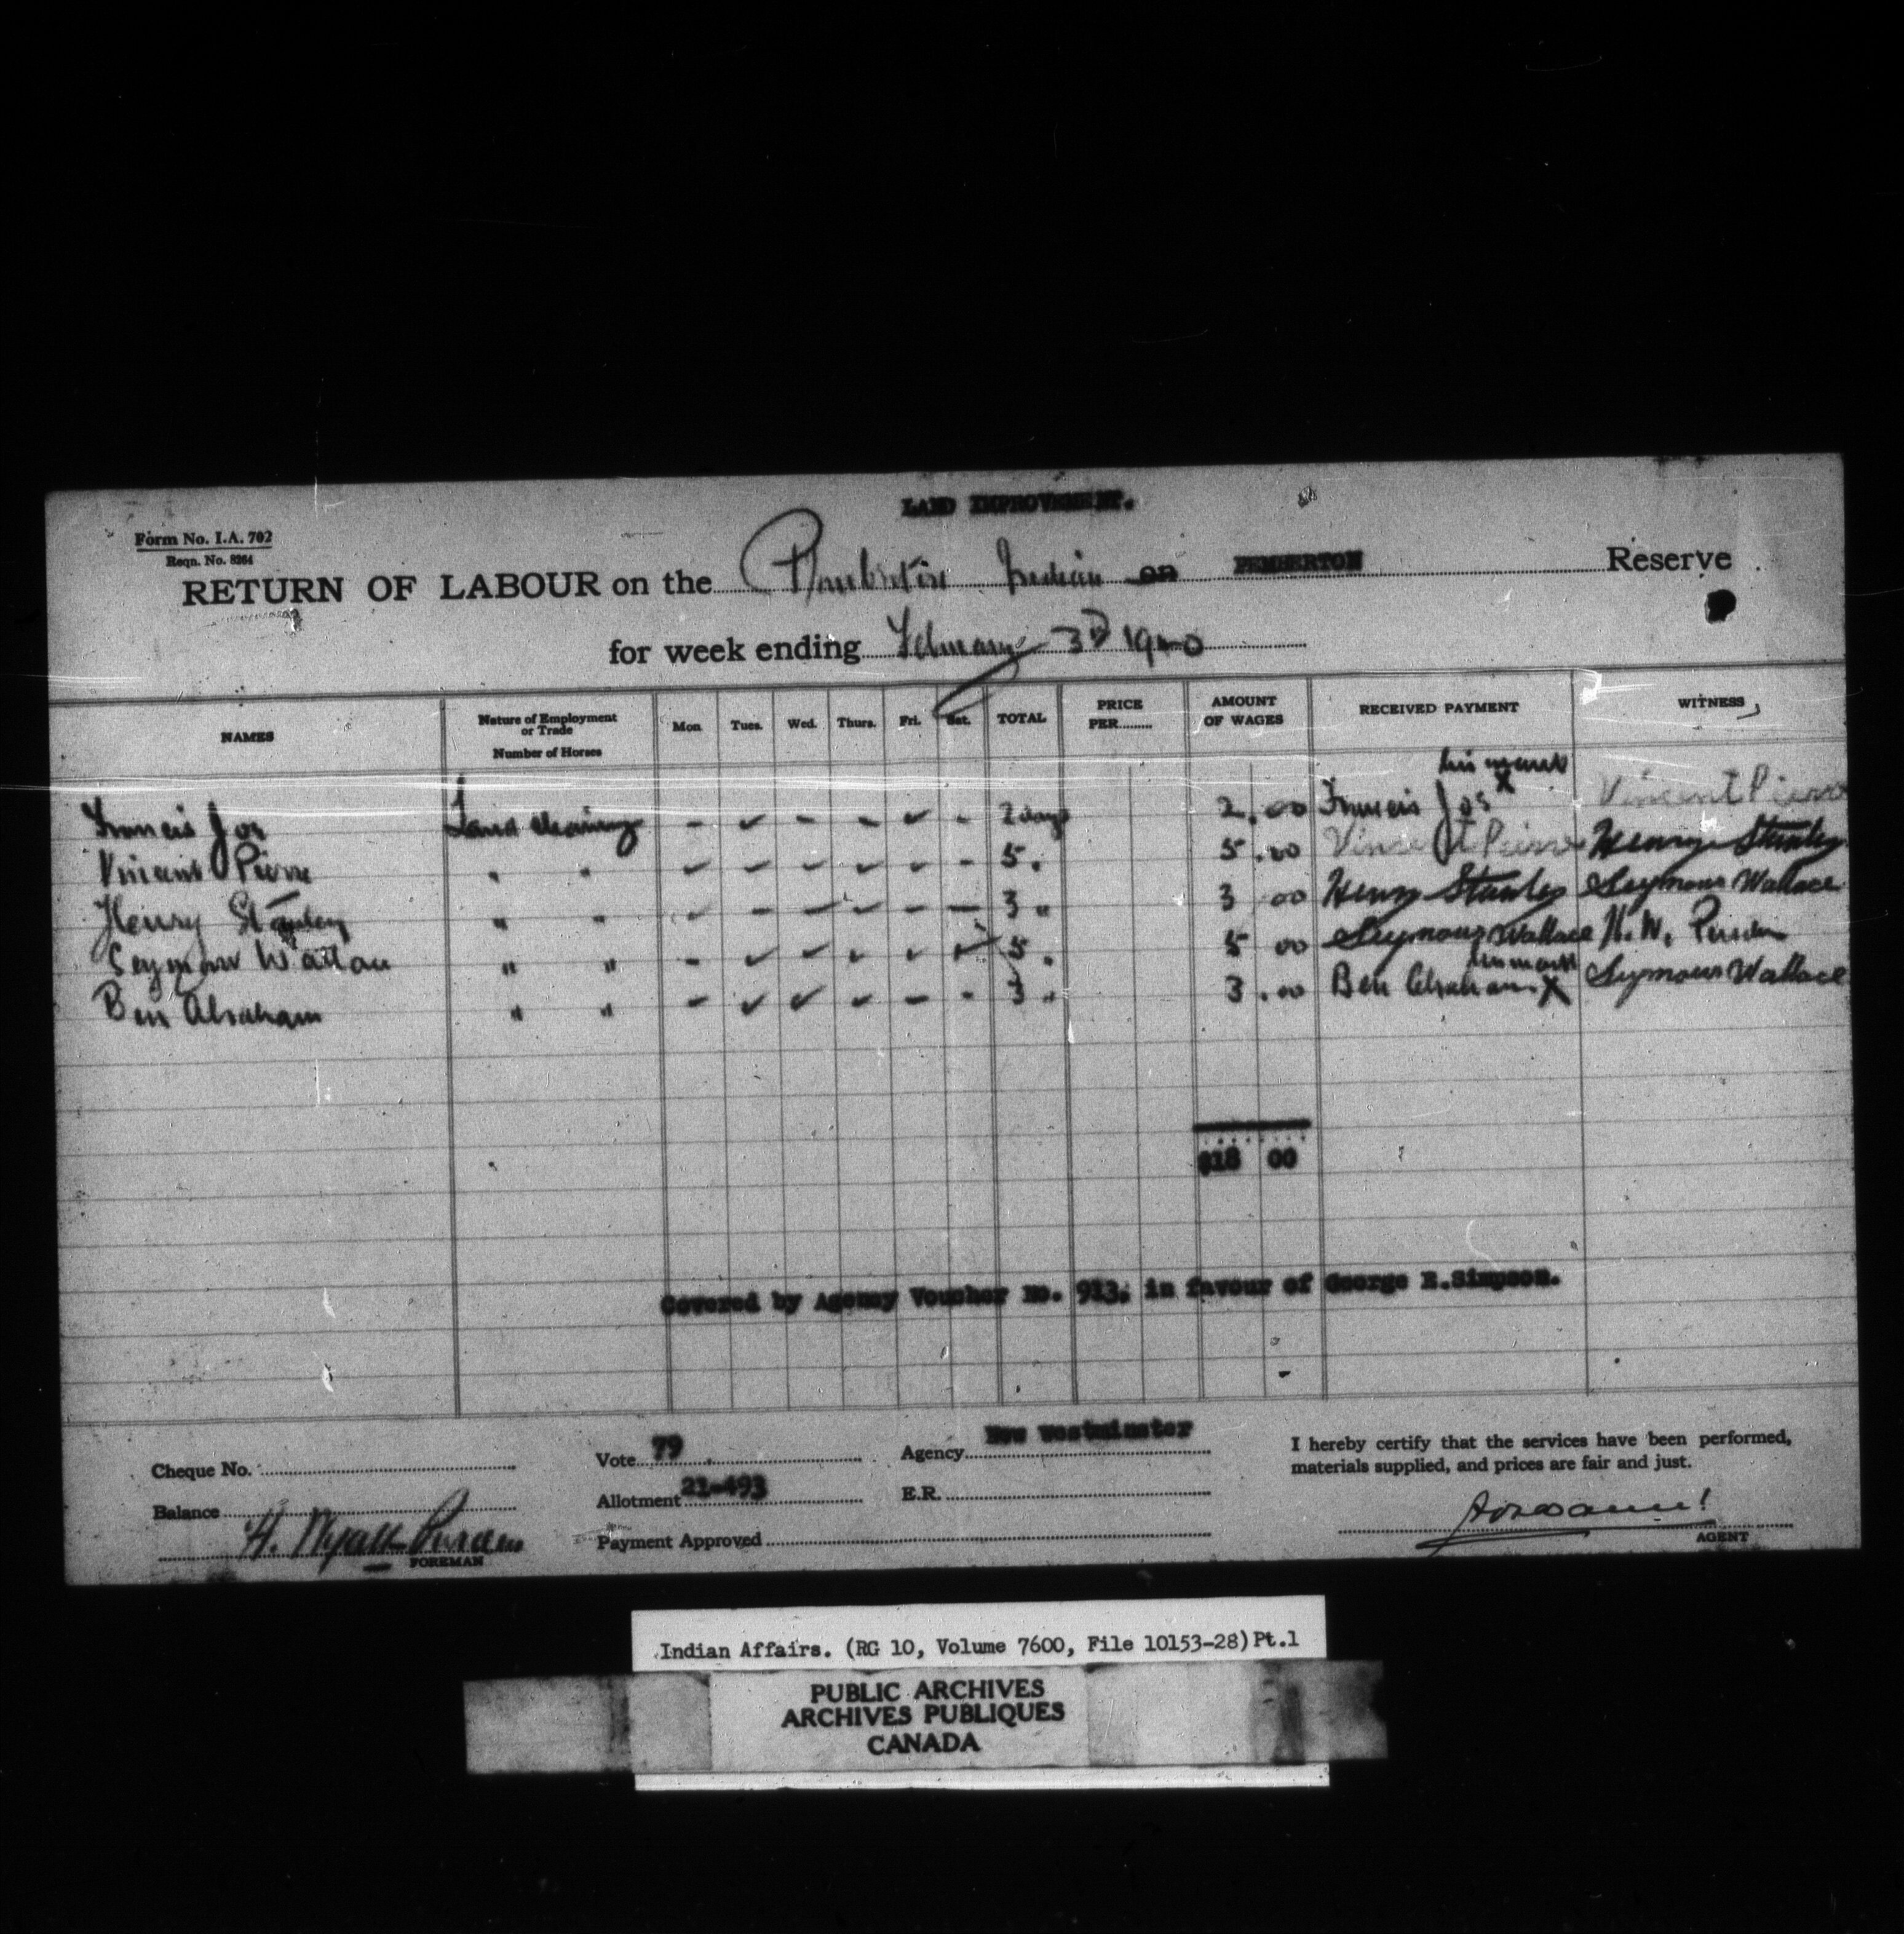 LAND IMPROVEMENT.
Form No. I.A. 702
Reqn. No. 8264
RETURN OF LABOUR on the Indian on PEMBERTON Reserve
for week ending February 3rd 1940
NAMES Nature of Employment or Trade Number of Horses Mon. Tues. Wed. Thurs. Fri. Sat. TOTAL PRICE PER........ AMOUNT OF WAGES RECEIVED PAYMENT WITNESS
his mark
Francis Joe Land clearing - ✓ - - ✓ - 2 days 2.00 Francis Joe X Vincent Pierre
Vincent Pierre " " ✓ ✓ ✓ ✓ ✓ - 5. 5.00 Vincent Pierre Henry Stanley
Henry Stanley " " 3 " 3 00 Henry Stanley Seymour Wallace
Seymour Wallace " " - ✓ ✓ ✓ ✓ ✓ 5. 5 00 Seymour Wallace H. W. Purden
his mark
Ben Abraham " " - ✓ ✓ 3 " 3.00 Ben Abraham X Seymour Wallace
$18 00
Covered by Agency Voucher No. 913, in favour of George E. Simpson.
Cheque No. Vote 79 Agency New Westminster I hereby certify that the services have been performed, materials supplied, and prices are fair and just.
Balance Allotment 21-493 E.R.
H. FOREMAN Payment Approved AGENT
Indian Affairs. (RG 10, Volume 7600, File 10153-28) Pt.1
PUBLIC ARCHIVES
ARCHIVES PUBLIQUES
CANADA